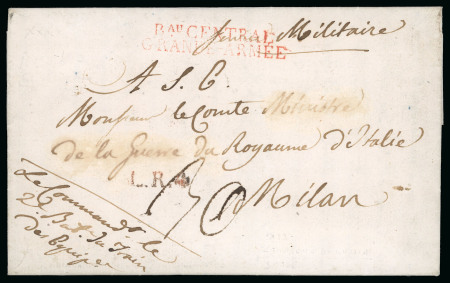 Bau CENTRAL
GRANDE-ARMÉE
Militaire
A S. E.
Monsieur le Comte Ministre
de la Guerre du Royaume d'Italie
Milan
L.R.4
Le Commandt le
2e Bat. du Train